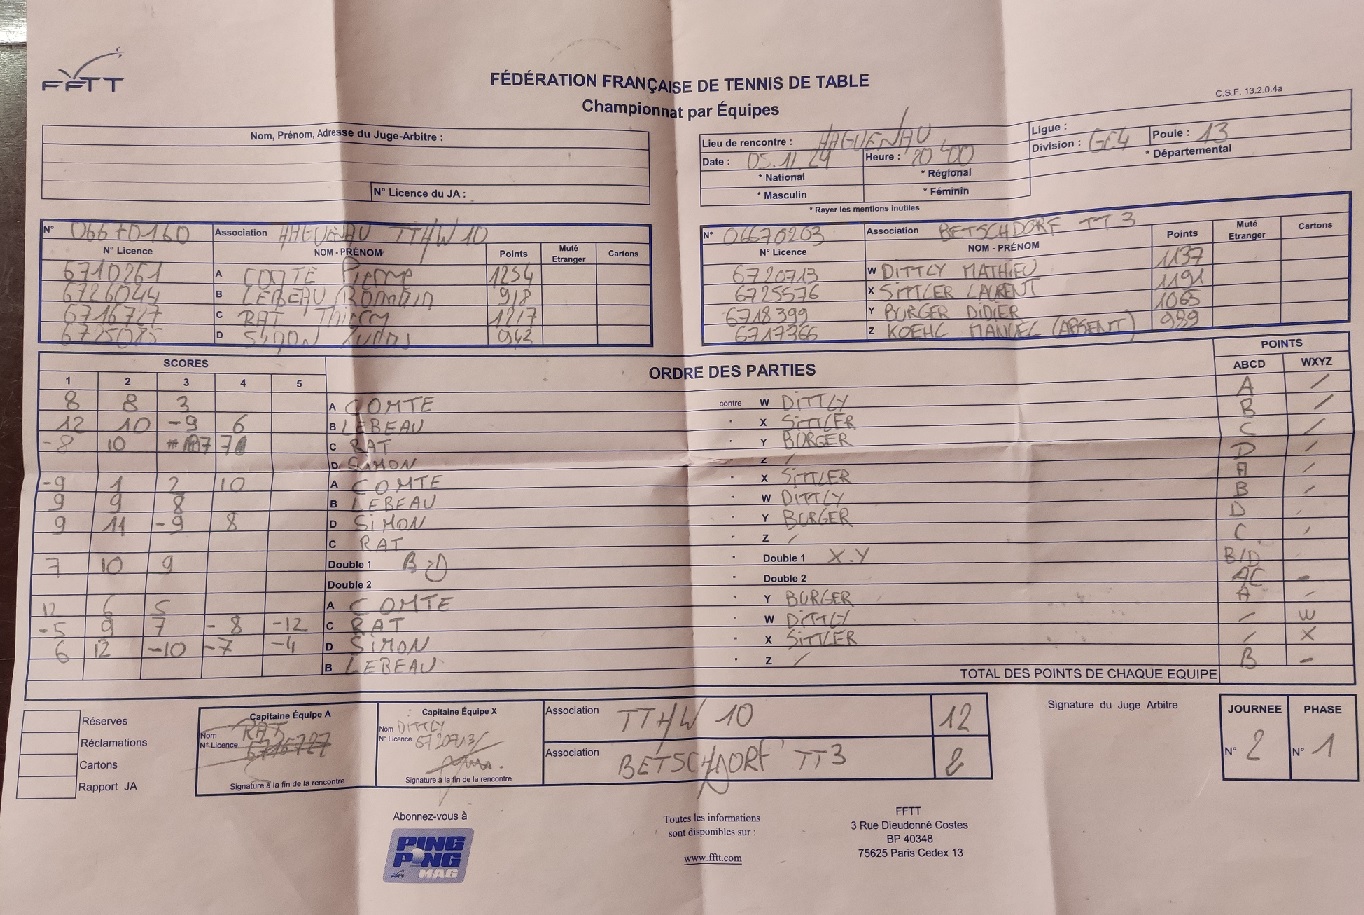 FFTT
FÉDÉRATION FRANÇAISE DE TENNIS DE TABLE
Championnat par Équipes
C.S.F. 13.2.0.4a
Nom, Prénom, Adresse du Juge-Arbitre :
N° Licence du JA :
Lieu de rencontre : HAGUENAU
Date : 05.11.24 Heure : 20h00
* National * Régional
* Masculin * Féminin
* Rayer les mentions inutiles
Ligue :
Division : GE4 Poule : 13
* Départemental
N° 06670160 Association HAGUENAU TTHW 10
N° Licence NOM - PRÉNOM Points Muté Etranger Cartons
6710261 A COMTE Pierre 1254
6726044 B LEBEAU Romain 918
6716727 C RAT Thierry 1217
D SIMON 942
N° 06670203 Association BETSCHDORF TT 3
N° Licence NOM - PRÉNOM Points Muté Etranger Cartons
6720713 W DITTLY MATHIEU 1137
6725576 X SITTLER LAURENT 1191
6718399 Y BURGER DIDIER 1065
6717366 Z KOEHL MANUEL (ABSENT) 939
SCORES ORDRE DES PARTIES POINTS
1 2 3 4 5 ABCD WXYZ
8 8 3 A COMTE contre W DITTLY A /
12 10 -9 6 B LEBEAU " X SITTLER B /
-8 10 7 7 C RAT " Y BURGER C /
D SIMON " Z / D /
-9 1 2 10 A COMTE " X SITTLER A /
9 9 8 B LEBEAU " W DITTLY B /
9 11 -9 8 D SIMON " Y BURGER D /
C RAT " Z / C /
7 10 9 Double 1 B D " Double 1 X.Y B/D
Double 2 " Double 2 AC -
12 6 5 A COMTE " Y BURGER A /
-5 9 7 -8 -12 C RAT " W DITTLY / W
6 12 -10 -7 -4 D SIMON " X SITTLER / X
B LEBEAU " Z / B -
TOTAL DES POINTS DE CHAQUE EQUIPE
Réserves
Réclamations
Cartons
Rapport JA
Capitaine Équipe A
Nom RAT
N° Licence 6716727
Signature à la fin de la rencontre
Capitaine Équipe X
Nom DITTLY
N° Licence 6720713
Signature à la fin de la rencontre
Association TTHW 10 12
Association BETSCHDORF TT3 2
Signature du Juge Arbitre
JOURNEE PHASE
N° 2 N° 1
Abonnez-vous à
PING PONG MAG
Toutes les informations
sont disponibles sur :
www.fftt.com
FFTT
3 Rue Dieudonné Costes
BP 40348
75625 Paris Cedex 13